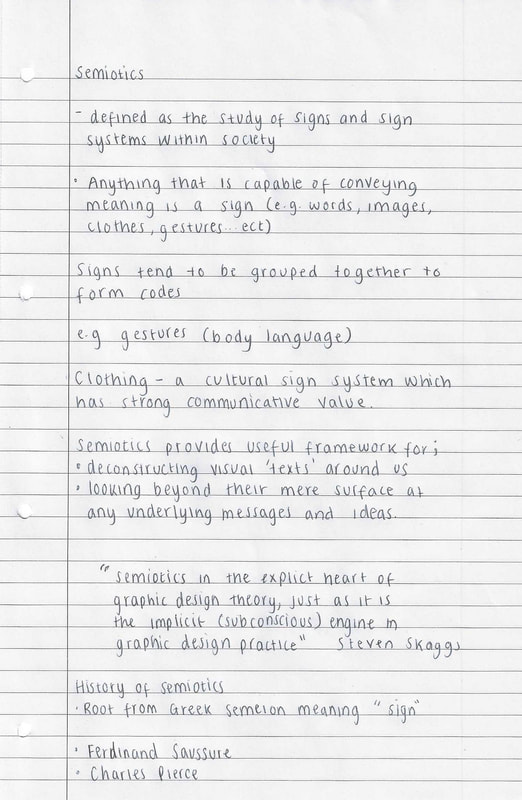 Semiotics
- defined as the study of signs and sign
systems within society
• Anything that is capable of conveying
meaning is a sign (e.g. words, images,
clothes, gestures... ect)
Signs tend to be grouped together to
form codes
e.g gestures (body language)
Clothing - a cultural sign system which
has strong communicative value.
Semiotics provides useful framework for;
• deconstructing visual 'texts' around us
• looking beyond their mere surface at
any underlying messages and ideas.
"semiotics in the explict heart of
graphic design theory, just as it is
the implicit (subconscious) engine in
graphic design practice" Steven Skaggs
History of semiotics
• Root from Greek semeion meaning "sign"
• Ferdinand Saussure
• Charles Pierce